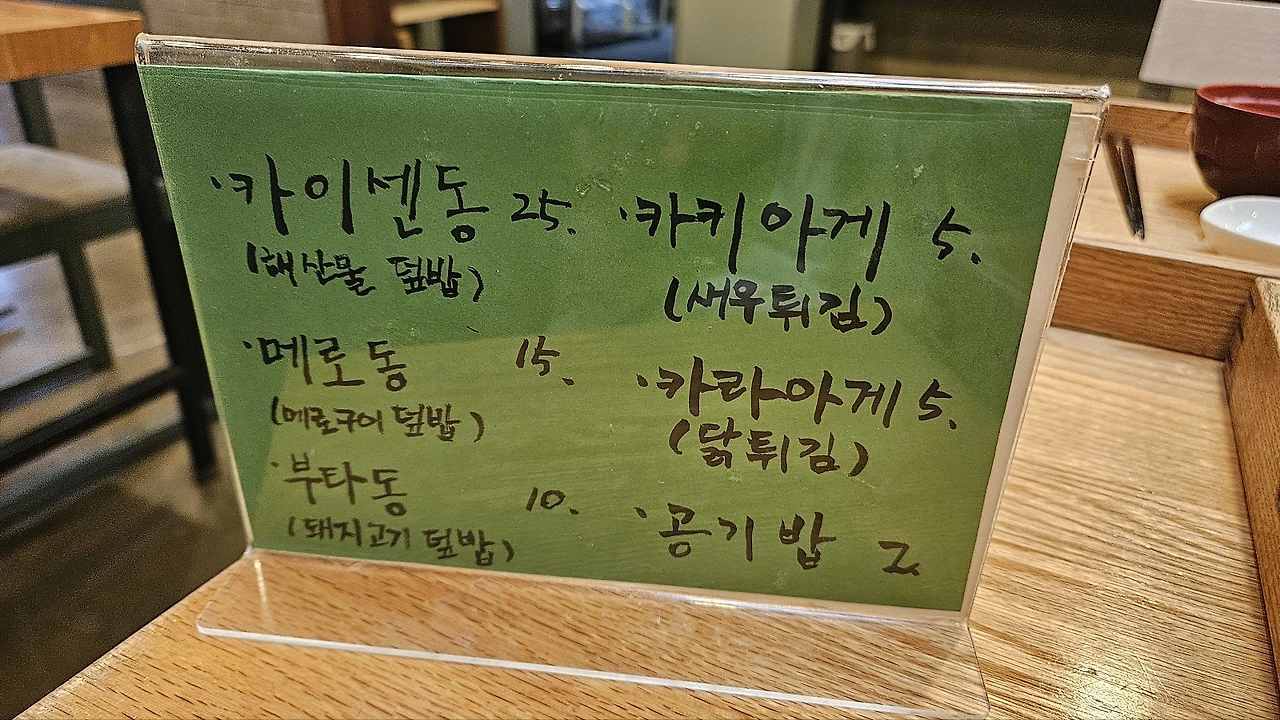 ·카이센동 25.
(해산물 덮밥)
·메로동 15.
(메로구이 덮밥)
·부타동 10.
(돼지고기 덮밥)
·카키아게 5.
(새우튀김)
·카라아게 5.
(닭튀김)
·공기밥 2.